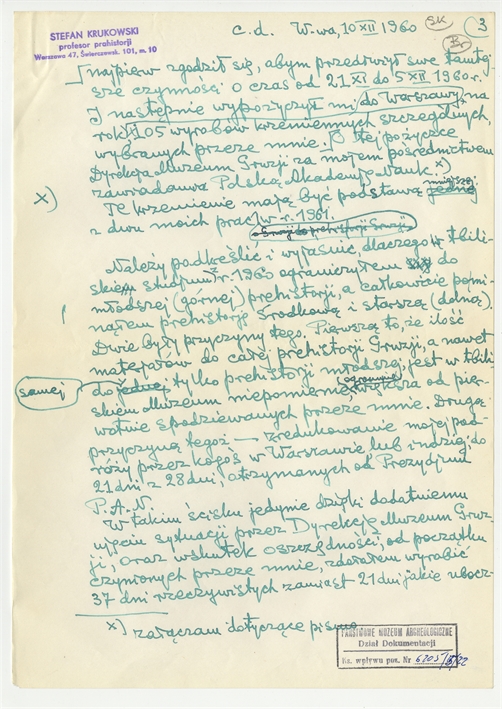 STEFAN KRUKOWSKI
profesor prehistorji
Warszawa 47, Świerczewsk. 101, m. 10
c.d. W-wa, 10 XII 1960
SK
3
najpierw zgodził się, abym przedłużył swe tamtej-
sze czynności o czas od 21 XI do 5 XII 1960 r.
I następnie wypożyczył mi do Warszawy, na
rok 105 wyrobów krzemiennych szczególnych,
wybranych przeze mnie. O tej pożyczce
Dyrekcja Muzeum Gruzji za mojem pośrednictwem
zawiadamia Polską Akademję Nauk. x)
x)
Te krzemienie mają być podstawą
z dwu moich prac w r. 1961.
Należy podkreślić i wyjaśnić dlaczego w tbili-
skiem studjum z r. 1960 ograniczyłem do
młodszej (górnej) prehistorji, a całkowicie pomi-
nąłem prehistorję środkową i starszą (dolną).
Dwie były przyczyny tego. Pierwszą to, że ilość
materjałów do całej prehistorji Gruzji, a nawet
do samej tylko prehistorji młodszej, jest w tbili-
skiem Muzeum niepomiernie ogromna większa od pier-
wotnie spodziewanych przeze mnie. Drugą
przyczyną tegoż — zredukowanie mojej pod-
róży przez kogoś w Warszawie lub indziej do
21 dni z 28 dni, otrzymanych od Prezydjum
P.A.N.
W takim ścisku jedynie dzięki dodatniemu
ujęciu sytuacji przez Dyrekcję Muzeum Gruz-
ji, oraz wskutek oszczędności, od początku
czynionych przeze mnie, zdołałem wyrobić
37 dni rzeczywistych zamiast 21 dni jakie
x) załączam dotyczące pismo
PAŃSTWOWE MUZEUM ARCHEOLOGICZNE
Dział Dokumentacji
Ks. wpływu poz. Nr